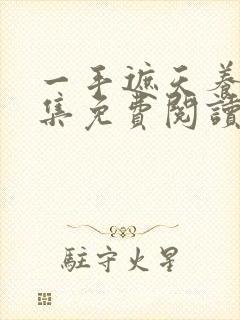 一手遮天養
集免費閱讀
駐守火星